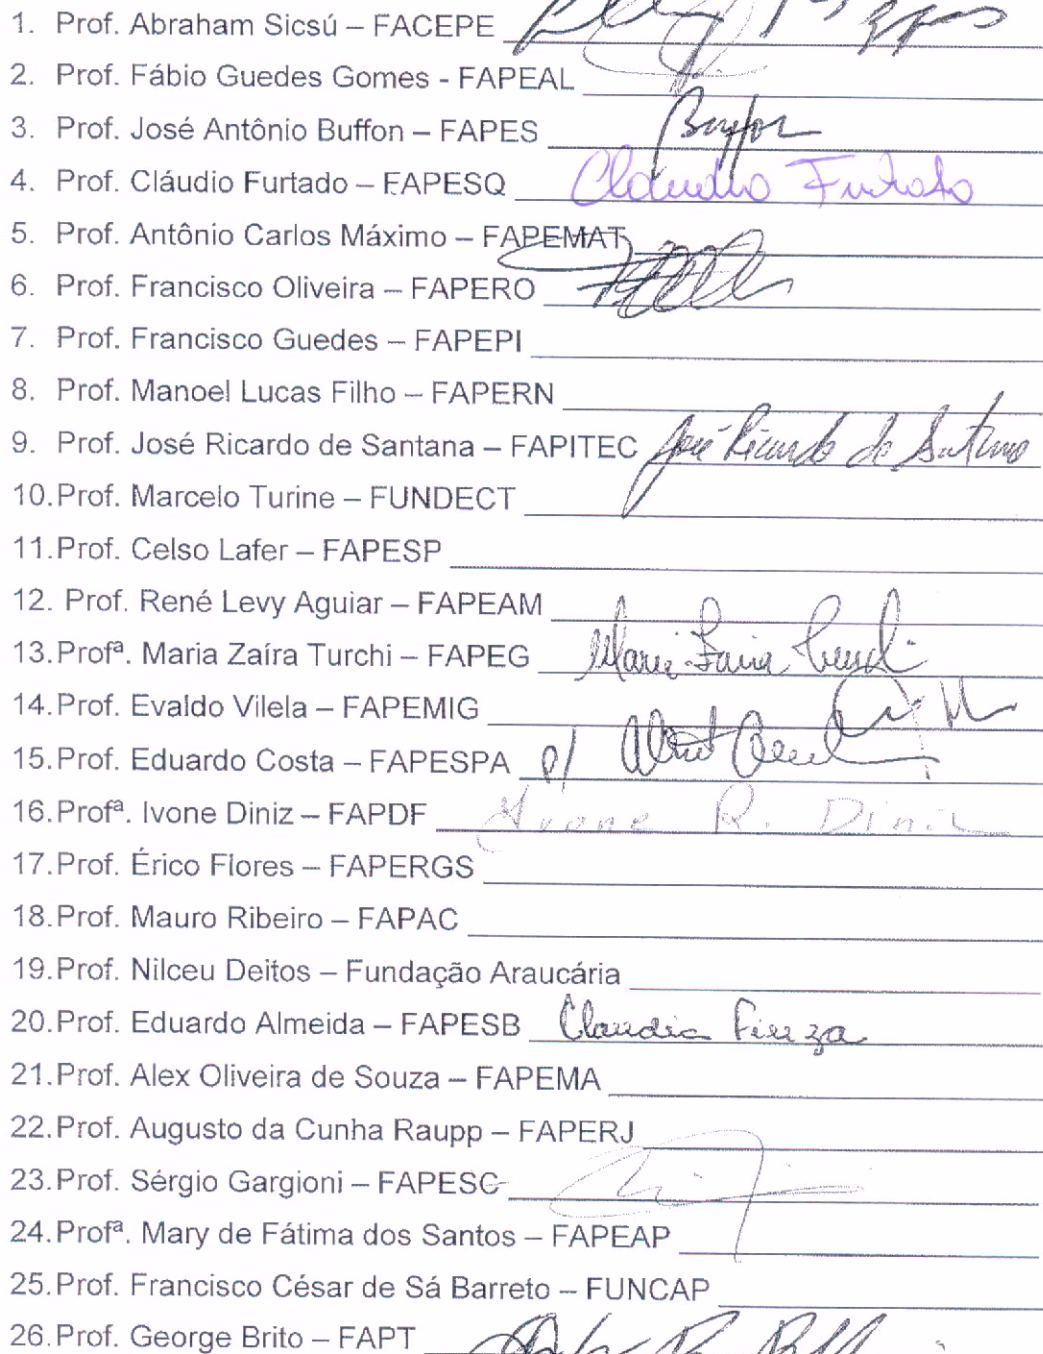 1. Prof. Abraham Sicsú – FACEPE
2. Prof. Fábio Guedes Gomes - FAPEAL
3. Prof. José Antônio Buffon – FAPES Buffon
4. Prof. Cláudio Furtado – FAPESQ Claudio Furtado
5. Prof. Antônio Carlos Máximo – FAPEMAT
6. Prof. Francisco Oliveira – FAPERO
7. Prof. Francisco Guedes – FAPEPI
8. Prof. Manoel Lucas Filho – FAPERN
9. Prof. José Ricardo de Santana – FAPITEC José Ricardo de Santana
10. Prof. Marcelo Turine – FUNDECT
11. Prof. Celso Lafer – FAPESP
12. Prof. René Levy Aguiar – FAPEAM
13. Profª. Maria Zaíra Turchi – FAPEG Maria Zaira Turchi
14. Prof. Evaldo Vilela – FAPEMIG
15. Prof. Eduardo Costa – FAPESPA p/
16. Profª. Ivone Diniz – FAPDF Ivone R. Diniz
17. Prof. Érico Flores – FAPERGS
18. Prof. Mauro Ribeiro – FAPAC
19. Prof. Nilceu Deitos – Fundação Araucária
20. Prof. Eduardo Almeida – FAPESB Claudia Fiuza
21. Prof. Alex Oliveira de Souza – FAPEMA
22. Prof. Augusto da Cunha Raupp – FAPERJ
23. Prof. Sérgio Gargioni – FAPESC
24. Profª. Mary de Fátima dos Santos – FAPEAP
25. Prof. Francisco César de Sá Barreto – FUNCAP
26. Prof. George Brito – FAPT